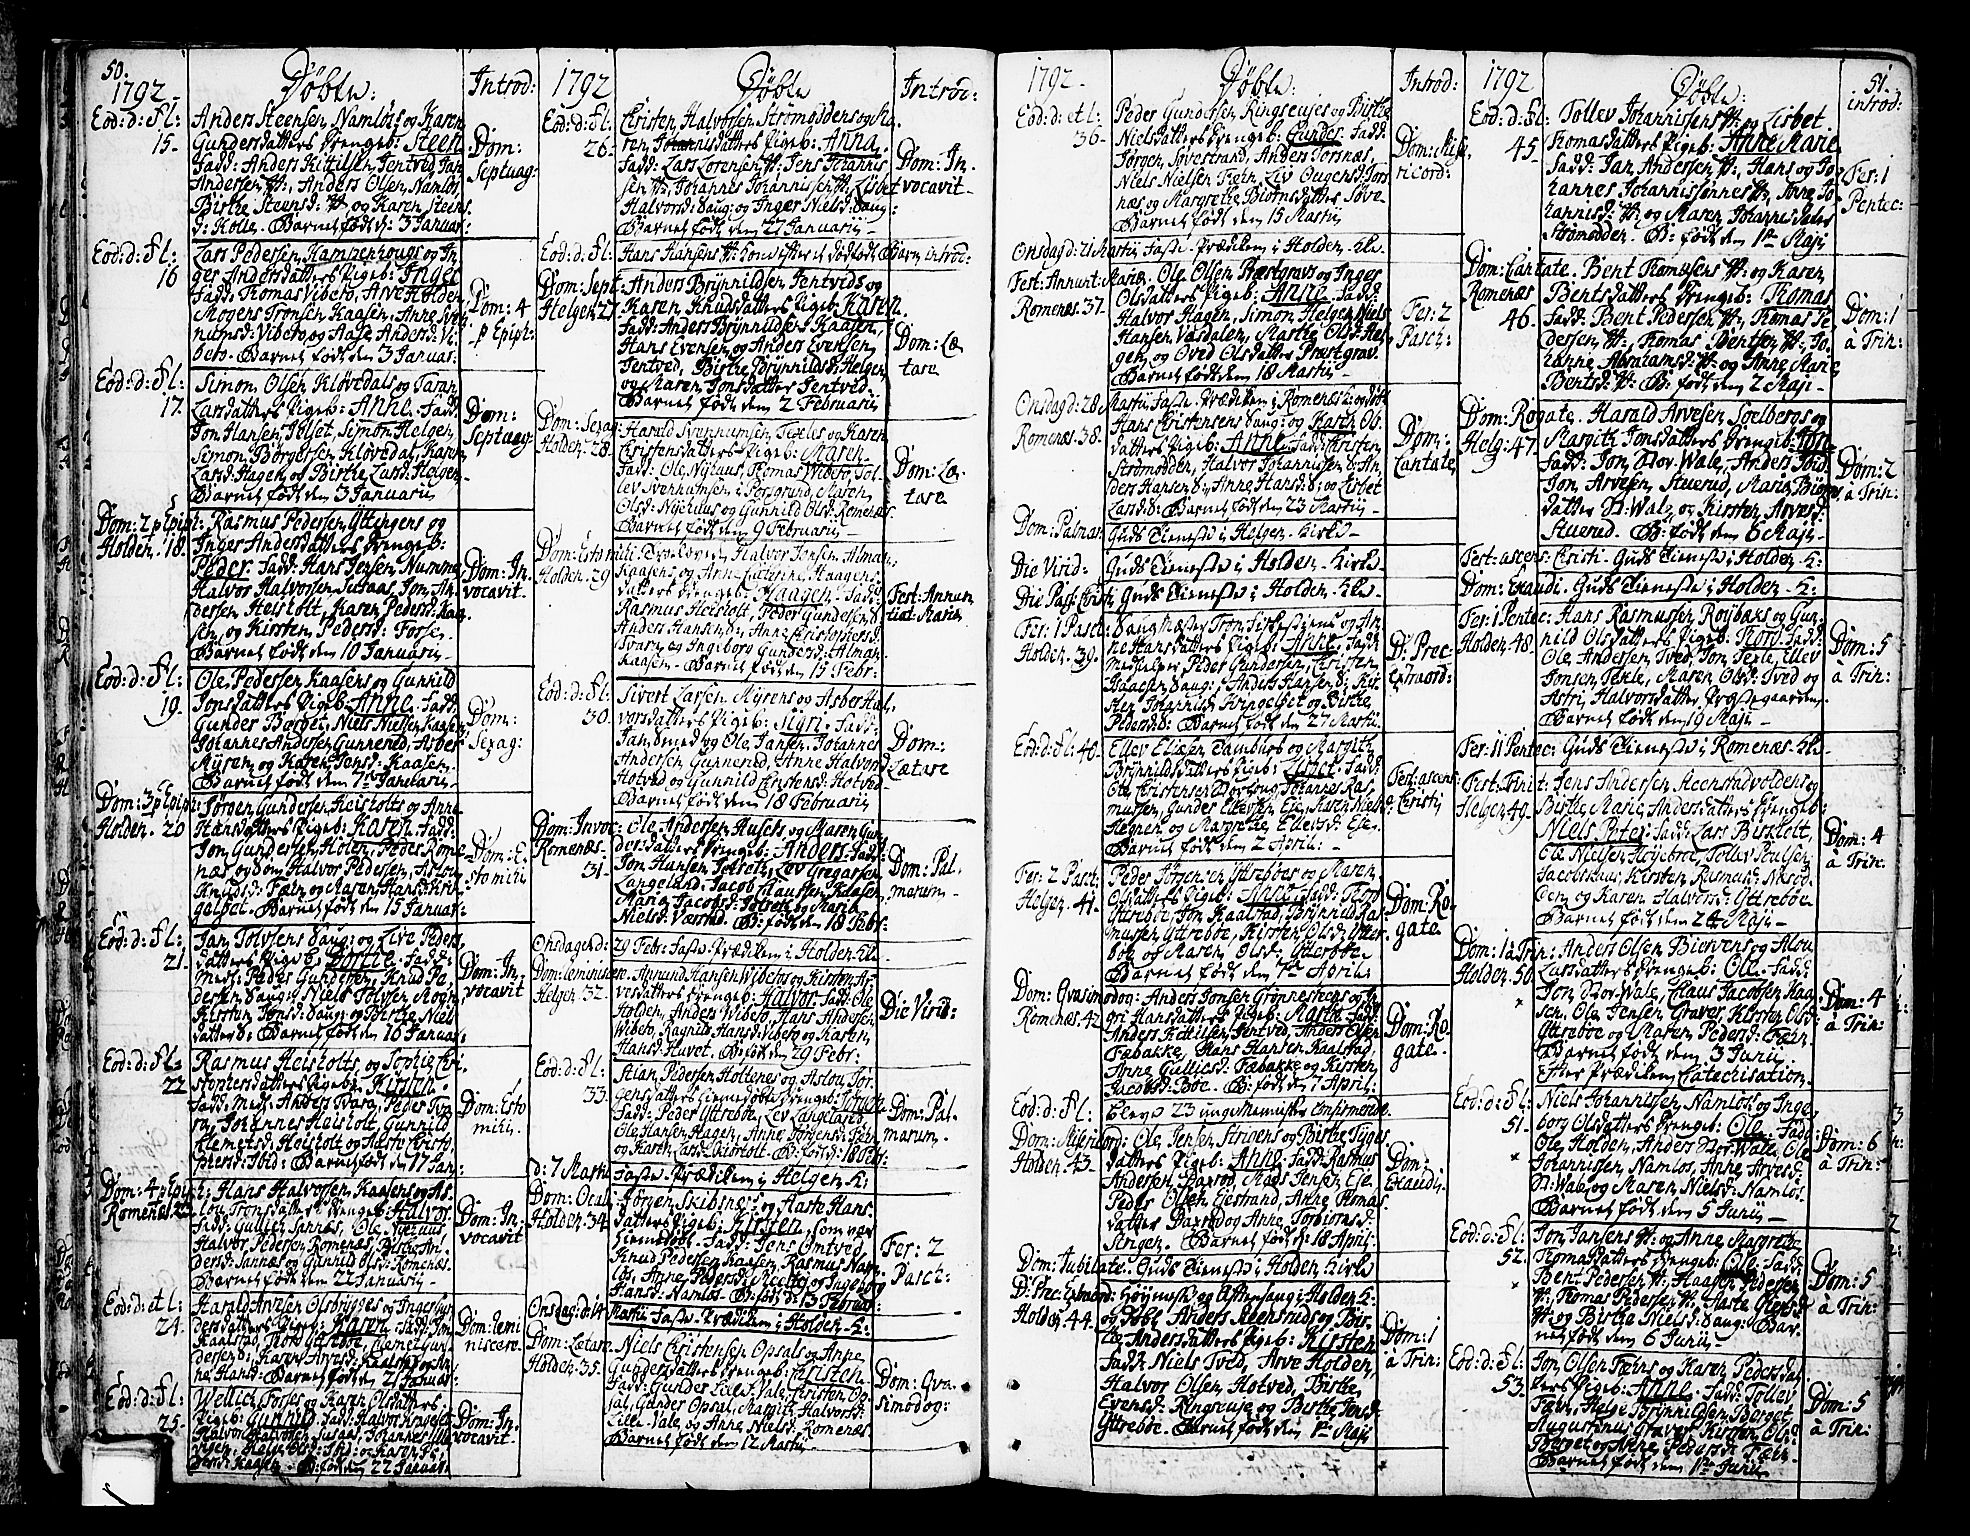 50.
1792
Döbte:
Introd:
Eod: d: Fl:
15
Anders Steensen Namløs og Karen
Gundersdatters Drengeb: Steen
Fadd: Anders Kittilsen Jentved, Jan
Andersen, Anders Olsen Namløs,
Birthe Steensd: og Karen Steens
d: Kolle. Barnet født d: 3 Januar:
Dom:
Septuag:
Eod: d: Fl:
16
Lars Pedersen Kamzenhouges og In
ger Andersdatters Pigeb: Inger
Fadd: Thomas Vibeto, Arve Holden
Mogens Tronsen Kaasen, Anne Sve
numsd: Vibeto og Aase Andersd: Vi
beto. Barnet født den 3 Januar:
Dom: 4
p Epiph:
Eod: d: Fl:
17.
Simon Olsen Kløvedals og Taran
Larsdatters Pigeb: Anne. Fadd:
Jon Hansen Jolset, Simon Helgen,
Simon Börgesen Klövedal, Karen
Larsd: Hagen og Birthe Larsd: Helgen
Barnet født den 3 Januarii
Dom:
Septuag:
Dom: 2 p Epiph:
Holden. 18.
Rasmus Pedersen Ytterengens og
Inger Andersdatters Drengeb:
Peder. Fadd: Hans Jensen Numme
Halvor Halvorsen Susaas, Jon An
dersen Heistolt, Karen Pedersd: Kaa
sen, og Kirsten Pedersd: Forse.
Barnet født den 10 Januarii
Dom: In
vocavit
Eod: d: Fl:
19.
Ole Pedersen Kaasens og Gunnild
Jonsdatters Pigeb: Anne. Fadd:
Gunder Borget, Niels Nielsen Kaasen
Johannes Andersen Gunnerud, Asber
Myren, og Karen Jensd: Kaasen.
Barnet født den 7de Januarii
Dom:
Sexag:
Dom: 3 p Epiph:
Holden. 20
Jörgen Gundersen Heistolts og Anne
Hansdatters Pigeb: Karen. Fadd:
Jon Gundersen Holen, Peder Rome
næs og dom Halvor Pedersen, Aslou
Knudsd: Fæhn og Maren Hansd: Kring
gelset. Barnet født den 15 Januar:
Dom: E
sto mihi
Eod: d: Fl:
21.
Jan Tolvsens Saug: og Live Peders
datters Pigeb: Dorthe. Fadd:
Med: Peder Gundersen, Knud Pe
dersen Saug: Niels Tolvsen Mogn
Kirsten Jonsd: Saug: og Birthe Niels
datter d: Barnet født den 16 Januar:
Dom: In
vocavit
Eod: d: Fl:
22
Rasmus Heistolts, og Sophie Chri
stophersdatters Pigeb: Kirsten.
Fadd: Med: Anders Tvara, Peder Tva
ra, Johannes Heistolt, Gunnild
Clemetsd: Heistolt og Aaste Christo
phersd: Ibid: Barnet født den 17 Jan:
Dom: Esto
mihi
Dom: 4 p Epiph:
Romenæs. 23
Hans Halvorsen Kaasens og As
lou Tronsdatters Drengeb: Halvor
Fadd: Gullich Sannæs, Ole Nyehuus
Halvor Pedersen Romenæs, Birthe An
dersd: Sannæs og Gunnild Olsd: Romenæs.
Barnet født den 22 Januarii
Dom: In
vocavit
Eod: d: et l:
24.
Harald Arvesen Olsbrygges og Inger Gun
dersdatters Pigeb: Karen. Fadd: Jon
Kaalstad, Thord Ytterböe, Clemet Gun
dersend: Karen Arvesd: Kaalstad og An
ne Hansd: Barnet født den 21 Januar:
Dom: Remi
niscere.
Eod: d: Fl:
25.
Wellich Forses og Karen Olsdatters
Pigeb: Gunnild. Fadd: Halvor
Halvor Halvorsen Susaas, Johannes
Barnet født den 22 Januar:
Dom: In
vocavit
1792
Döbte
Introd:
Eod: d: Fl:
26.
Christen Halvorsen Strömoddens og Ka
ren Johannisdatters Pigeb: Anna.
Fadd: Lars Lorensen, Jens Johannis
sen, Johannes Johannissen, Lisbet
Halvorsd: Saug: og Inger Nielsd: Saug
Barnet født den 27 Januarii
Dom: In
vocavit
Eod: d: Fl:
Hans Hansens Honvisthes et dødfødt Barn introd:
Dom: Sept:
Helgen 27
Anders Brynnildsen Jentveds og
Karen Knudsdatters Pigeb: Karen.
Fadd: Anders Brynnildsen Kaasen,
Hans Evensen og Anders Evensen
Jentved, Birthe Brynnildsd: Helgen
og Maren Jonsdatter Jentved.
Barnet født den 2 Februarii
Dom: Læ
tare
Dom: Sexag:
Holden. 28.
Harald Svennumsen Texles og Karen
Christensdatters Pigeb: Maren.
Fadd: Ole Nyhuus, Thomas Wibeto, Tol
lev Svennumsen i Porsgrund, Maren
Olsd: Nyehuus og Gunnild Olsd: Romenæs.
Barnet født den 9 Februarii
Dom: Læ
tare
Dom: Esto mihi
Holden. 29
Halvor Jonsen Alman
Kaasens og Anne Cathrine Haagens
datters Drengeb: Haagen. Fadd:
Rasmus Heistolt, Peder Gundersen
Anders Hansen d: Anne Christophersd:
Tvara og Ingeborg Gundersd: Alman
Kaasen. Barnet født den 15 Febr:
Fest: Annun
tiat: Mariæ
Eod: d: Fl:
30.
Sivert Larsen Myrens og Asber Hal
vorsdatters Pigeb: Siyri. Fadd:
Jan Smed og Ole Jansen, Johannes
Andersen Gunnerud, Anne Halvorsd:
Hotved og Gunnild Christensd: Hotved
Barnet født den 18 Februarii
Dom:
Lætare
Dom: Invoc:
Romenæs.
31
Ole Andersen Huses og Maren Gun
dersdatters Drengeb: Anders. Fadd:
Jon Hansen Jolset, Lev Gregarsen
Langeland, Jacob Clausten Kaasen,
Maria Jacobsd: Jolset og Maria
Nielsd: Værstad. B: født den 18 Febr:
Dom: Pal
marum.
Onsdagen d:
29 Febr: Faste Prædiken i Holden K:
Dom: Reminiscere.
Helgen. 32.
Amund Hansen Vibetos og Kirsten Ar
vesdatters Drengeb: Halvor. Fadd: Ole
Holden, Anders Wibeto, Hans Andersen
Wibeto, Ragnild Hansd: Vibeto og Karen
Hansd: Huvet. B: født den 29 Febr:
Die Virid:
Eod: d: Fl:
33.
Stian Pedersen Holtenes og Aslou Jør
gensdatters hiemedøbte Drengeb: Jörgen
Fadd: Peder Ytterböe, Lev Langeland,
Ole Hansen Hagen, Anne Jörgensd: Fæhn
og Karen Larsd: Heistolt. B: født d: 18 Febr:
Dom: Pal
marum.
d: 7 Martii
Faste Prædiken i Helgen K:
Dom: Ocul:
Holden. 34.
Jørgen Skibsnes og Haste Hans
datters Pigeb: Kirsten, som var
hiemedøbt. Fadd: Jens Omtved,
Knud Pedersen Kaasen, Rasmus Nam
løs, Anne Pedersd: og Ingeborg
Hansd: Namløs. B: født d: 13 Februar:
Fer: 2
Pasch:
Onsdag: d: 14
Martii Faste Prædiken i Holden K:
Dom: Lætare
Holden. 35.
Niels Christensen Opsals og Anne
Gundersdatters Drengeb: Christen.
Fadd: Gunder Lille Vale, Christen Op
sal, Gunder Opsal, Margit Halvorsd:
Lille Vale og Anne Nielsd: Romenæs.
Barnet født den 12 Martii
Dom: Qva
simodog:
1792
Döbte:
Introd:
Eod: d: et l:
36.
Peder Gundersen Ringseujes og Birthe
Nielsdatters Drengeb: Gunder. Fadd:
Jörgen Sövestrand, Anders Torsnæs,
Niels Nielsen Fæhn, Liv Ougensd: Tors
næs og Margrethe Biörnsdatter Söve.
Barnet født den 15 Martii
Dom: Mise
ricord:
Onsdag d: 21 Martii Faste Prædiken i Holden Kke
Fest: Annunt: Mariæ.
Romenæs. 37.
Ole Olsen Præstgravs og Inger
Olsdatters Pigeb: Anne. Fadd:
Halvor Hagen, Simon Helgen, Niels
Hansen Vasdalen, Marthe Olsd: Hel
gen, og Oved Olsdatter Præstgrav.
Barnet født den 18 Martii
Fer: 2
Pasch:
Onsdag d: 28 Martii Faste Prædiken i Romenæs K: og döbt
Romenæs. 38.
Hans Christensens Saug: og Karen Ol
datters Pigeb: Anne. Fadd: Christen
Strömodden, Halvor Johannissen d: An
ders Hansen d:, Anne Hansd: d: og Lisbet
Larsd: d: Barnet født den 23 Martii
Dom:
Cantate
Dom: Palmar:
Guds Tieneste i Helgen Kirke
Die Virid:
Guds Tieneste i Holden Kirke
Die Pass: Christi
Guds Tieneste i Holden Kke
Fer: 1 Pasch:
Holden. 39.
Saug Mester Tron Fiskestiens og An
ne Hansdatters Pigeb: Anne. Fadd:
medhielper Peder Gundersen, Christen
Isaacsen Saug: Anders Hansen d: Kir
sten Johannisd: Kringelset og Birthe
Pedersd: Barnet født den 27 Martii
D: Prec:
Extraord:
Eod: d: Fl: 40.
Ellev Eliæsen Damböes og Margith
Brynnildsdatters Pigeb: Fadd:
Ole Christensen Johannes Ras
mussen, Gunder Ellevsen Eie, Karen Niels
Hegnen og Margrethe Ellevsd: Eie.
Barnet født den 2 April:
Fest: ascens:
Christi
Fer: 2 Pasch:
Helgen. 41.
Peder Jörgensen Ytterböes og Maren
Olsdatters Pigeb: Anne. Fadd: Thord
Ytterböe, Jon Kaalstad, Brynnild Ras
mussen Ytterböe, Kirsten Olsd: Ytter
böe og Maren Olsd: Ytterböe
Barnet født den 1ste April:
Dom: Ro
gate
Dom: Qvasimodog:
Romenæs. 42
Anders Jonsen Grönnesteens og In
gri Hansdatters Pigeb: Marthe. Fadd:
Anders Kittilsen Jentved, Anders Olsen
Fæbakke, Hans Hansen Kaalstad,
Anne Gullicsd: Fæbakke og Kirsten
Jacobsd: Boe. B: født den 7 April:
Dom: Ro
gate.
Eod: d: Fl:
bleve 23 unge Mennisker confirmerede.
Dom: Misericord:
Holden. 43.
Ole Jensen Strigens og Birthe Tyges
datters Pigeb: Anne. Fadd: Rasmus
Andersen Baxrod, Mads Jensen Eie,
Peder Olsen Gjestrand, Anne Thomas
datter Baxrod og Anne Torbiornsd:
Strigen. Barnet født den 18 April:
Dom:
Exaudi
Dom: Jubilate.
Guds Tieneste i Holden Kirke
D: Prec: Extraord:
Holden. 44.
Höymesse og Aftensang i Holden K:
og döbt Anders Reensruds og Bir
the Andersdatters Pigeb: Kirsten
Fadd: Niels Tved, Arve Holden,
Halvor Olsen Hotved, Birthe
Evensd: Ringseuje og Birthe Jensd:
Ytterböe. Barnet født den 1ste Maji
Dom: 1
à Trin:
51.
1792
Döbte:
introd:
Eod: d: Fl:
45.
Tollev Johannissens og Lisbet
Thomasdatters Pigeb: Anne Marie
Fadd: Jan Andersen, Hans og Jo
hannes Johannissønner, Anne Jo
hannisd: og Maren Johannisdatter
Strømodden. B: født den 1ste Maji
Fer: 1
Pentec:
Dom: Cantate.
Romenæs
46.
Bent Thomæsens og Karen
Bentsdatters Drengeb: Thomas
Fadd: Bent Pedersen, Thomas Pe
dersen, Thomas Bentsen, Jo
hanne Abrahamsd: og Anne Marie
Bentsd: B: født den 2 Maji
Dom: 1
à Trin:
Dom: Rogate.
Helg: 47.
Harald Arvesen Spelbergs og
Margith Jonsdatters Drengeb: Tore
Fadd: Jon Stor Wale, Anders Ibid:
Jon Arvesen Stuerud, Maria Biörns
datter St: Wale og Kirsten Arvesd:
Stuerud. B: født den 6 Maji
Dom: 2
à Trin:
Fest: ascens: Christi.
Guds Tieneste i Holden K:
Dom: Exaudi.
Guds Tieneste i Holden K:
Fer: 1 Pentec:
Holden. 48.
Hans Rasmussen Röybæks og Gun
nild Olsdatters Pigeb: Fadd:
Ole Andersen Tved, Jon Texle, Ellev
Jonsen Texle, Maren Olsd: Tved og
Astri Halvorsdatter Præstegaarden
Barnet født den 19 Maji
Dom: 5
à Trin:
Fer: 11 Pentec:
Guds Tieneste i Romenæs Kke
Fest: Trinit:
Helgen 49.
Jens Andersen Reenstadvoldens og
Birthe Marie Andersdatters Drengeb:
Niels Peter. Fadd: Lars Birkholt,
Ole Nielsen Höyeböe, Tollev Poulsen
Jacobskaas, Kirsten Rasmusd: Næsod
den og Karen Halvorsd: Ytterböe
Barnet født den 24 Maji
Dom: 4
à Trin:
Dom: 1 à Trin:
Holden. 50.
Anders Olsen Biervens og Alou
Larsdatters Drengeb: Ole. Fadd:
Jon Stor Wale, Claus Jacobsen Kaa
sen, Ole Jensen Graver, Kirsten Olsd:
Ytterböe og Maren Pedersd: Fæhn.
Barnet født den 3 Junii
Efter Prædiken Catechisation.
Dom: 4
à Trin:
Eod: d: Fl:
51.
Niels Johannissen Namløs og Inge
borg Olsdatters Drengeb: Ole. Fadd:
Ole Holden, Anders Stor Wale, Ole
Johannissen Namløs, Anne Arvesd:
St: Wale og Maren Nielsd: Namløs.
Barnet født den 5 Junii
Dom: 6
à Trin:
Eod: d: Fl:
52.
Jon Jansens og Anne Margrethe
Thomasdatters Drengeb: Ole. Fadd:
Bent Pedersen, Haagen Pedersen
Thomas Pedersen, Aaste Giertsd:
og Birthe Nielsd: Saug: Bar
net født den 6 Junii
Dom: 5
à Trin:
Eod: d: Fl:
53.
Jon Olsen Fæhns og Karen Pedersdat
ters Pigeb: Anne. Fadd: Tollev
Fæhn, Helge Brynnildsen Borget,
Augustinus Graver, Kirsten Olsd:
Borget og Anne Pedersd: Fæhn
Barnet født den 1ste Junii
Dom: 5
à Trin: